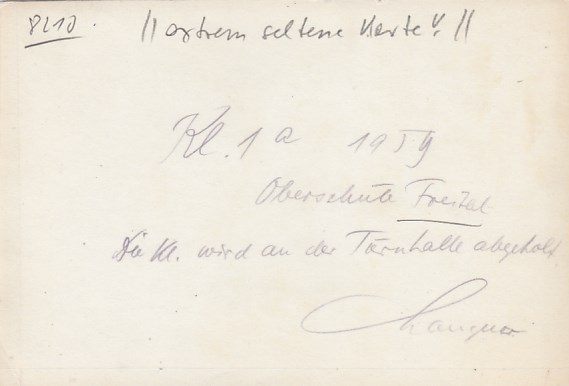 8210 // extrem seltene Karte! //
Kl. 1a 1959
Oberschule Freital
Die Kl. wird an der Turnhalle abgeholt